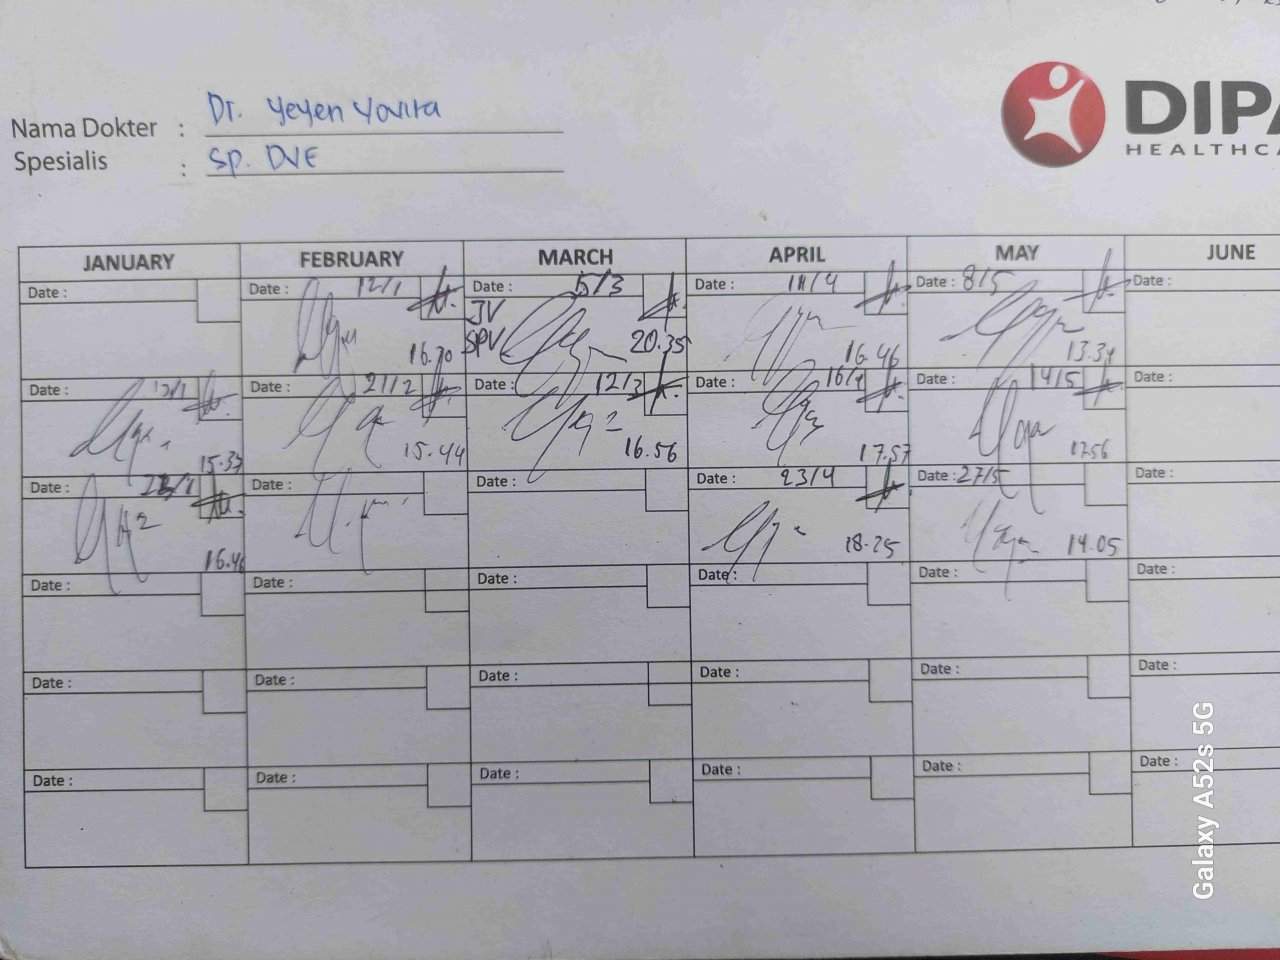 Nama Dokter : Dr. Yeyen Yovita
Spesialis : Sp. DVE
DIPA
HEALTHCA
JANUARY FEBRUARY MARCH APRIL MAY JUNE
Date : Date : 12/1 Date : 5/3 Date : 11/4 Date : 8/5 Date :
JV
SPV
16.30 20.35 16.46 13.34
Date : 12/1 Date : 21/2 Date : 12/3 Date : 16/4 Date : 14/5 Date :
15.37 15.44 16.56 17.57 17.56
Date : Date : Date : Date : 23/4 Date : 27/5
16.46 18.25 14.05
Date : Date : Date : Date : Date : Date :
Date : Date : Date : Date : Date : Date :
Date : Date : Date : Date : Date : Date :
Galaxy A52s 5G